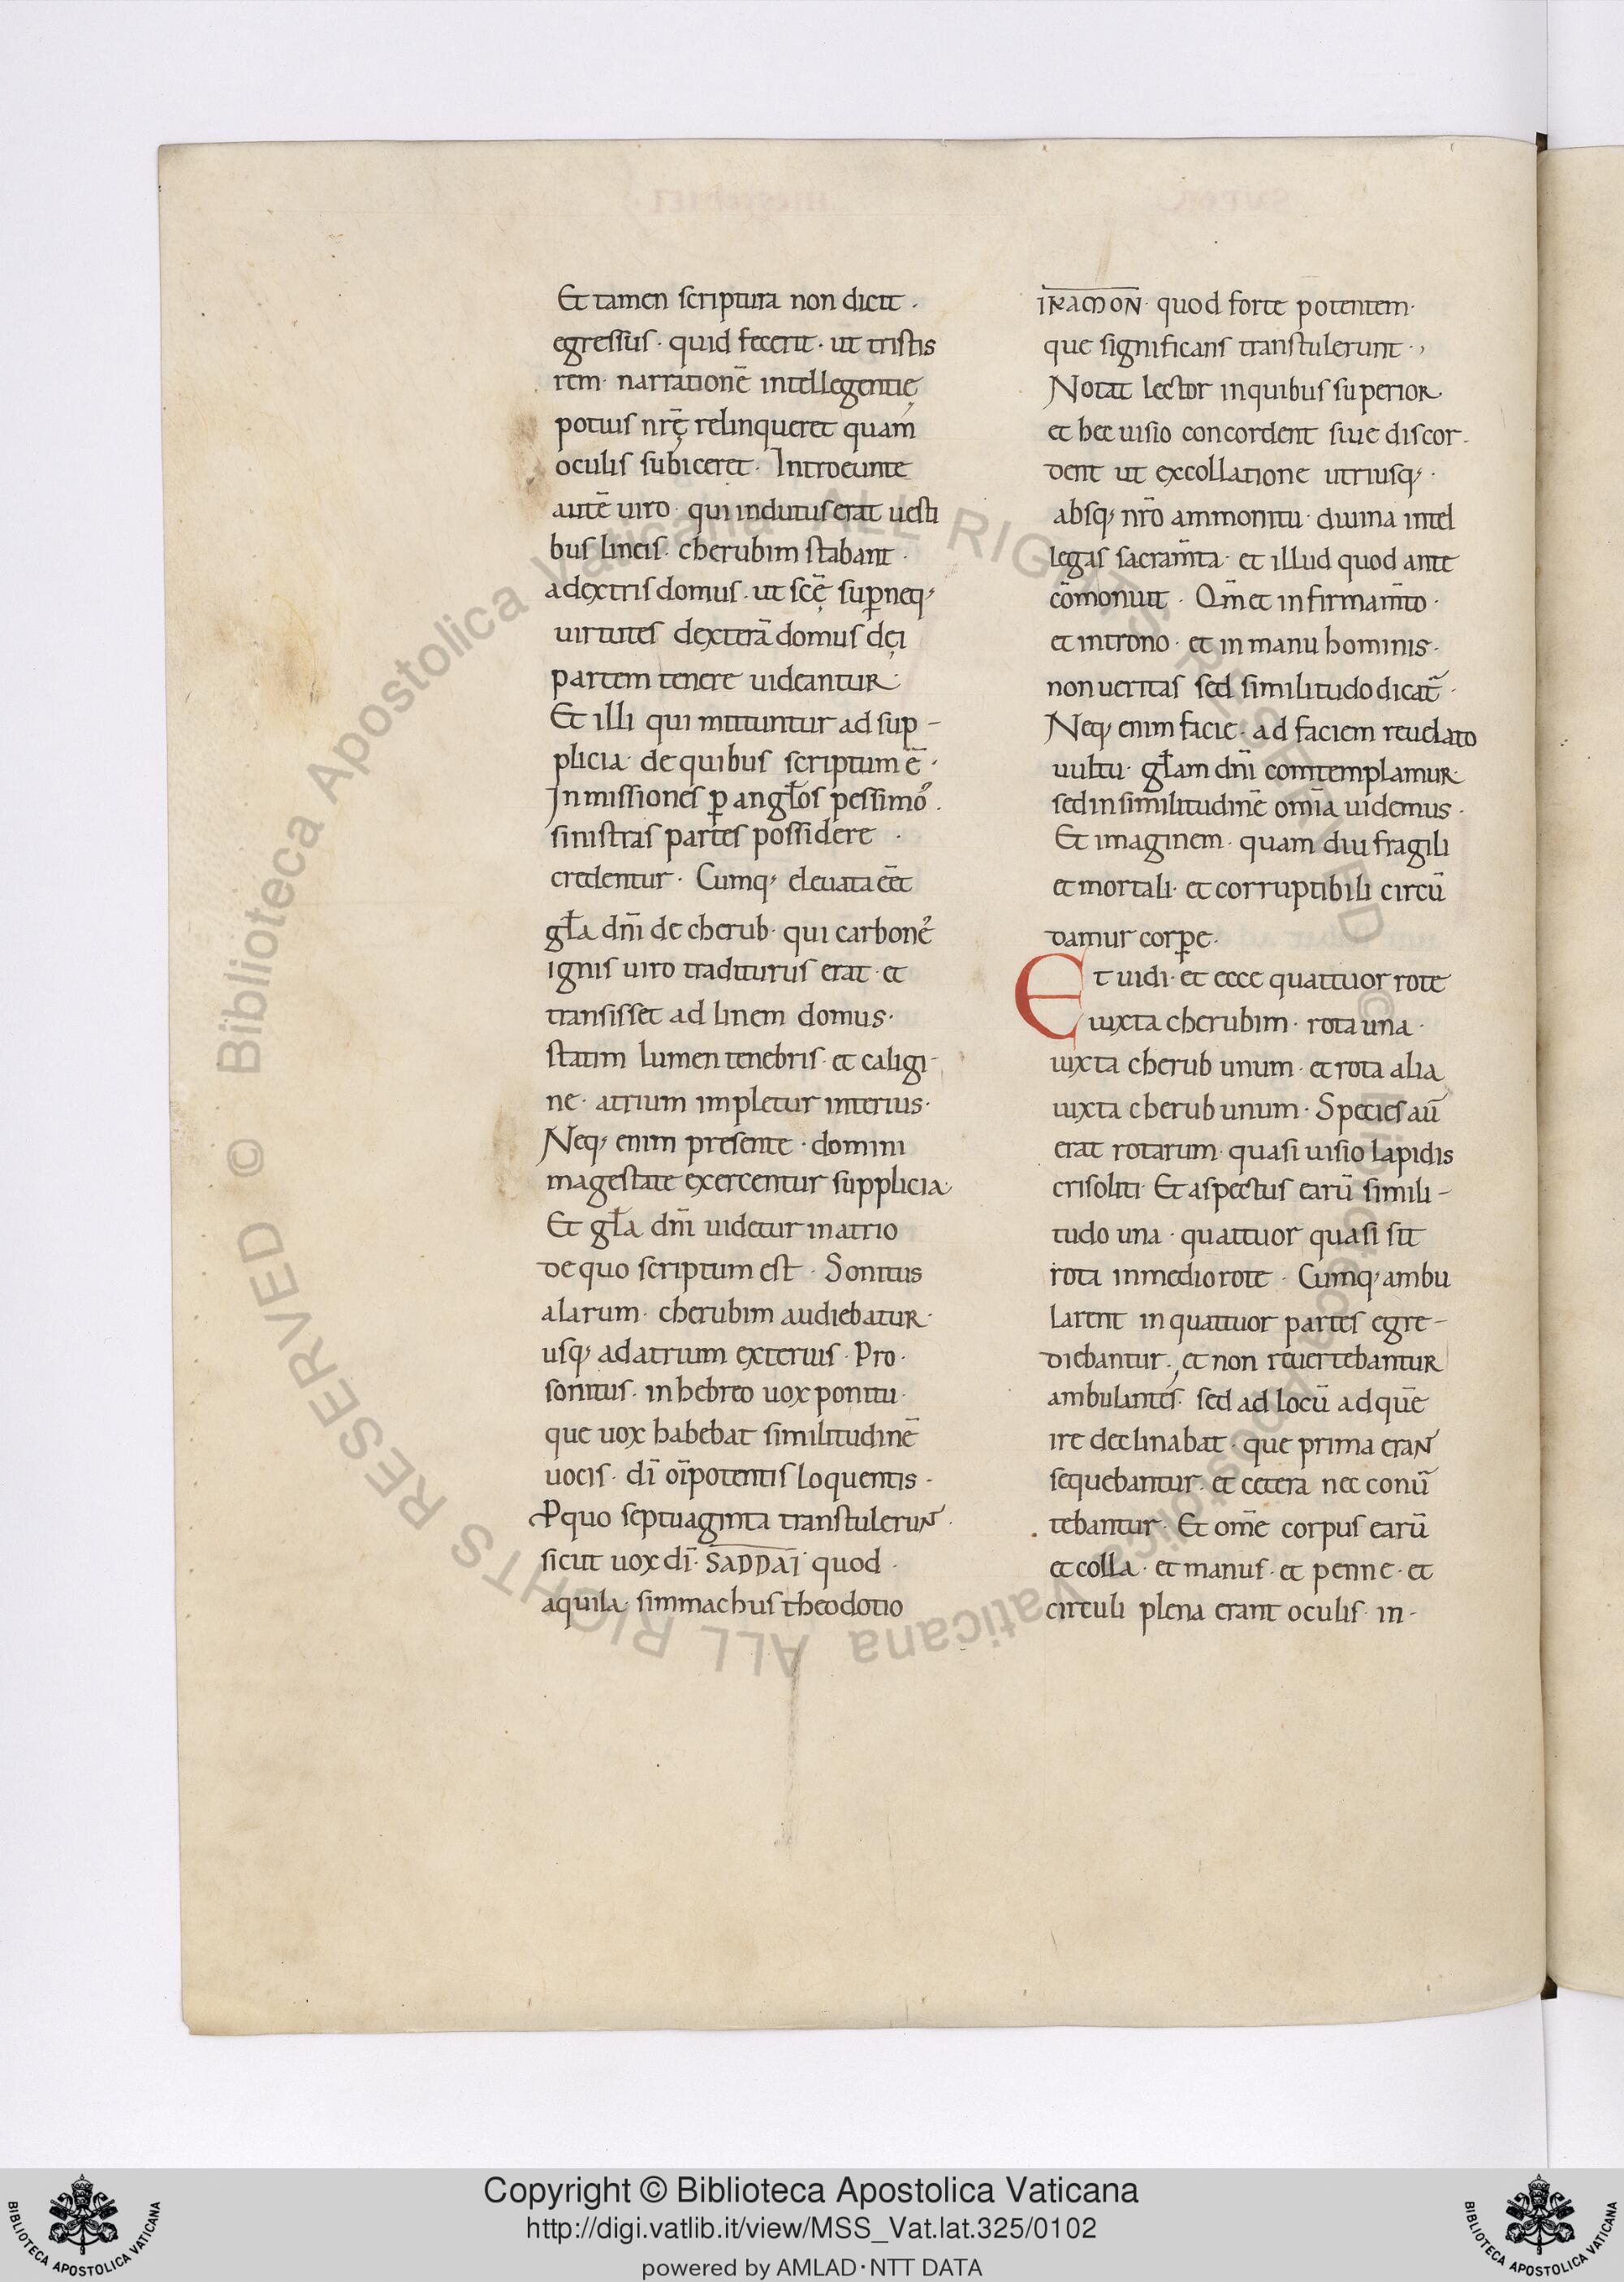 Et tamen scriptura non dicit ·
egressus · quid fecerit · ut tristis
rem · narrationē intellegentię
potius nr̄ę relinqueret quam
oculis subiceret · Introeunte
autē uiro · qui indutus erat uesti
bus lineis · cherubim stabant ·
adextris domus · ut sc̄ę sup̄neq;
uirtutes dexterā domus dei
partem tenere uideantur ·
Et illi qui mittuntur ad sup-
plicia · de quibus scriptum ē ·
Inmissiones p̄ angl̄os pessimoʼ ·
sinistras partes possidere ·
credentur · Cumq; eleuata eēt
gl̄a dn̄i de cherub · qui carboneʼ
ignis uiro traditurus erat · et
transisset ad linem domus ·
statim lumen tenebris · et caligi-
ne · atrium impletur interius ·
Neq; enim presente · domini
magestate exercentur supplicia ·
Et gl̄a dn̄i uidetur inatrio
de quo scriptum est · Sonitus
alarum · cherubim audiebatur ·
usq; ad atrium exterius · Pro ·
sonitus · in hebreo uox ponitu ·
que uox habebat similitudinē
uocis · dī oīpotentis loquentis ·
P quo septuaginta transtulerunt ·
sicut uox dī · SADDAI quod ·
aquila · simmachus theodotio
IRAMON · quod forte potentem ·
que significans transtulerunt ·,
Notat lector inquibus superior ·
et hec uisio concordent siue discor-
dent ut excollatione utriusq; ·
absq; nr̄o ammonitu · diuina intel
legas sacram̄ta · et illud quod ante
cōmonuit · Qm̄ et in firmam̄to ·
et introno · et in manu hominis ·
non ueritas sed similitudo dicat̄ ·
Neq; enim facie · ad faciem reuelato
uultu · gl̄am dn̄i comtemplamur ·
sed in similitudinē om̄ia uidemus ·
Et imaginem · quam diu fragili
et mortali · et corruptibili circū
damur corp̄e ·
Et uidi · et ecce quattuor rote
iuxta cherubim · rota una ·
iuxta cherub unum · et rota alia
iuxta cherub unum · Species aū
erat rotarum · quasi uisio lapidis
crisoliti · Et aspectus earū simili-
tudo una · quattuor quasi sit
rota inmedio rote · Cumq; ambu
larent in quattuor partes egre-
diebantur · et non reuertebantur
ambulantes · sed ad locū ad quē
ire declinabat · que prima erant
sequebantur · et cetera nec conū
tebantur · Et om̄e corpus earū
et colla · et manus · et penne · et
circuli plena erant oculis · in-
© Biblioteca Apostolica Vaticana ALL RIGHTS RESERVED © Biblioteca Apostolica Vaticana ALL RIGHTS RESERVED
Copyright © Biblioteca Apostolica Vaticana
http://digi.vatlib.it/view/MSS_Vat.lat.325/0102
powered by AMLAD·NTT DATA
BIBLIOTECA APOSTOLICA VATICANA
BIBLIOTECA APOSTOLICA VATICANA